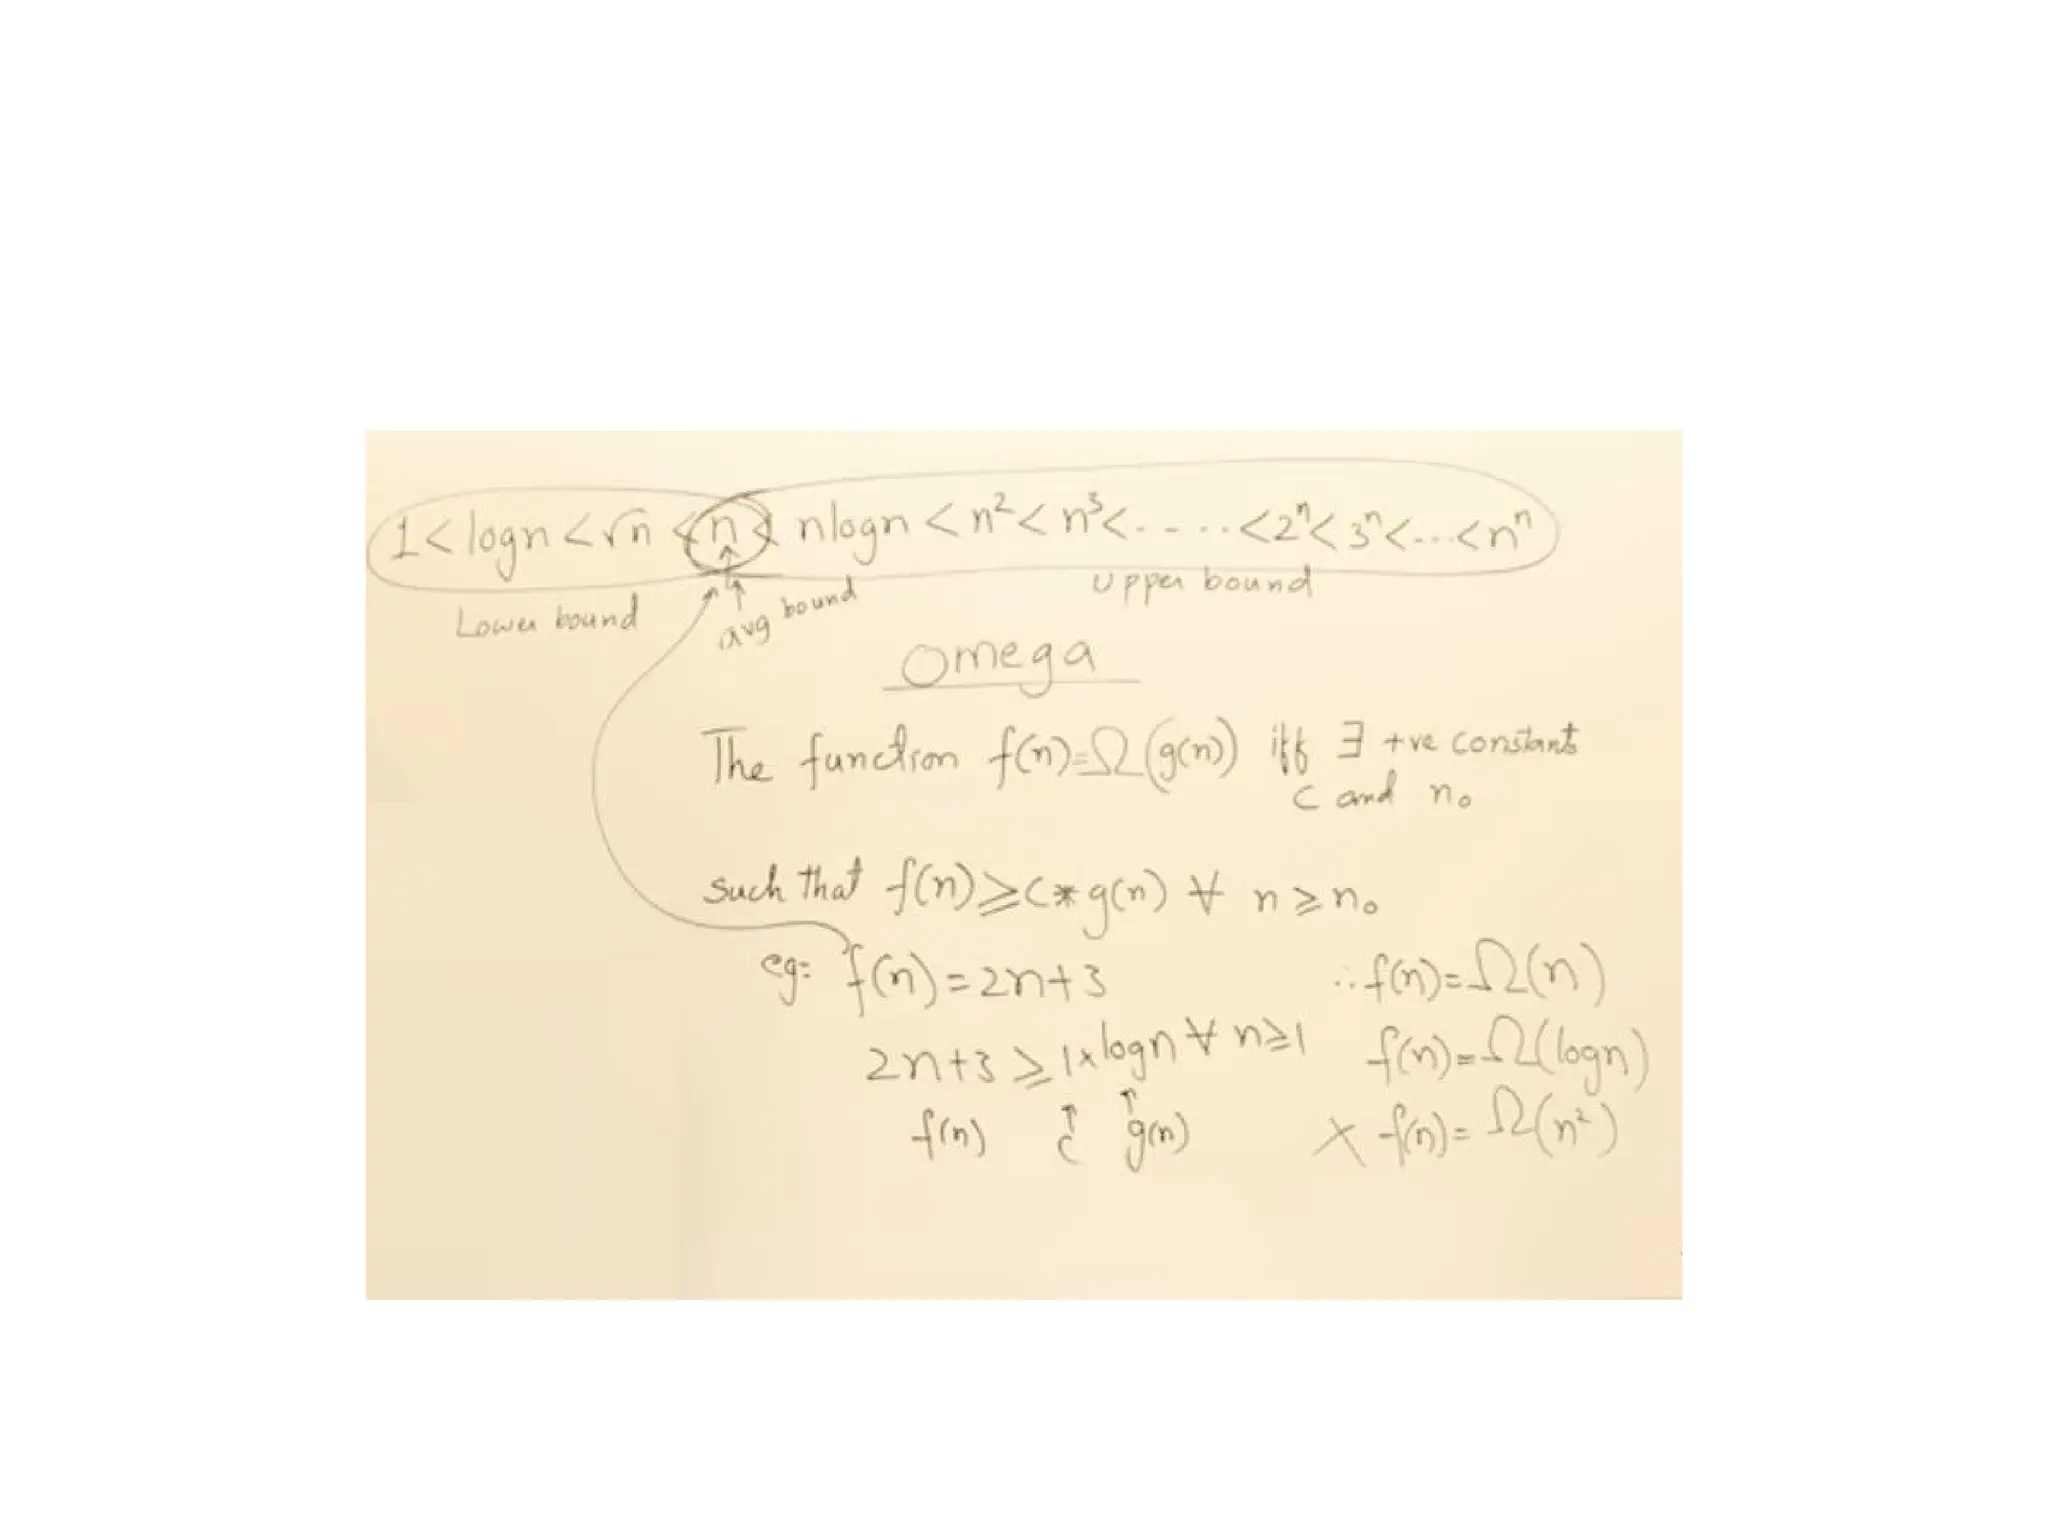 1 < logn < √n < n < nlogn < n² < n³ < - - - - - < 2ⁿ < 3ⁿ < ... < nⁿ
Lower bound avg bound Upper bound
Omega
The function f(n)=Ω(g(n)) iff ∃ +ve constants
c and n₀
such that f(n) ≥ c * g(n) ∀ n ≥ n₀
eg: f(n) = 2n+3 ∴ f(n) = Ω(n)
2n+3 ≥ 1×logn ∀ n≥1 f(n) = Ω(logn)
f(n) ↑ c ↑ g(n) X f(n) = Ω(n²)